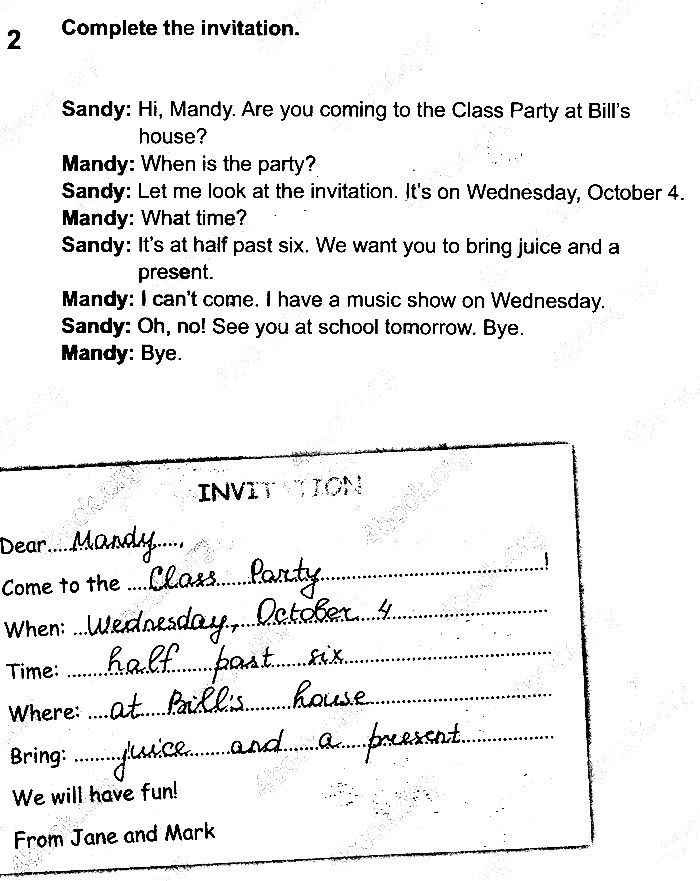 2 Complete the invitation.
Sandy: Hi, Mandy. Are you coming to the Class Party at Bill's
house?
Mandy: When is the party?
Sandy: Let me look at the invitation. It's on Wednesday, October 4.
Mandy: What time?
Sandy: It's at half past six. We want you to bring juice and a
present.
Mandy: I can't come. I have a music show on Wednesday.
Sandy: Oh, no! See you at school tomorrow. Bye.
Mandy: Bye.
INVITATION
Dear....Mandy....,
Come to the ....Class Party....!
When: ...Wednesday, October 4....
Time: ....half past six....
Where: ....at Bill's house....
Bring: ....juice and a present....
We will have fun!
From Jane and Mark